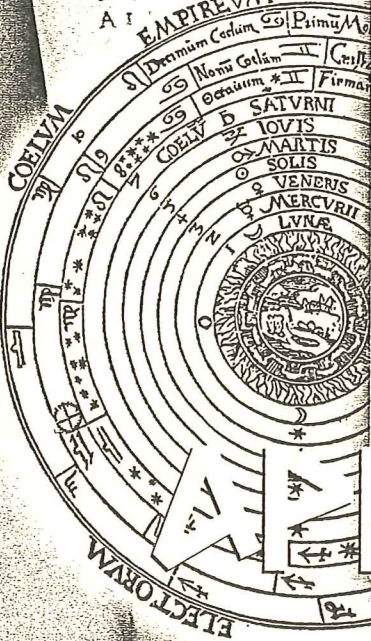 COELVM EMPIREVM
Decimum Coelum Primū Mo
Nonū Coelum Cristl
Octauum Firmam
8 COELV
7 SATVRNI
6 IOVIS
5 MARTIS
4 SOLIS
3 VENERIS
2 MERCVRII
1 LVNÆ
ELECTORVM